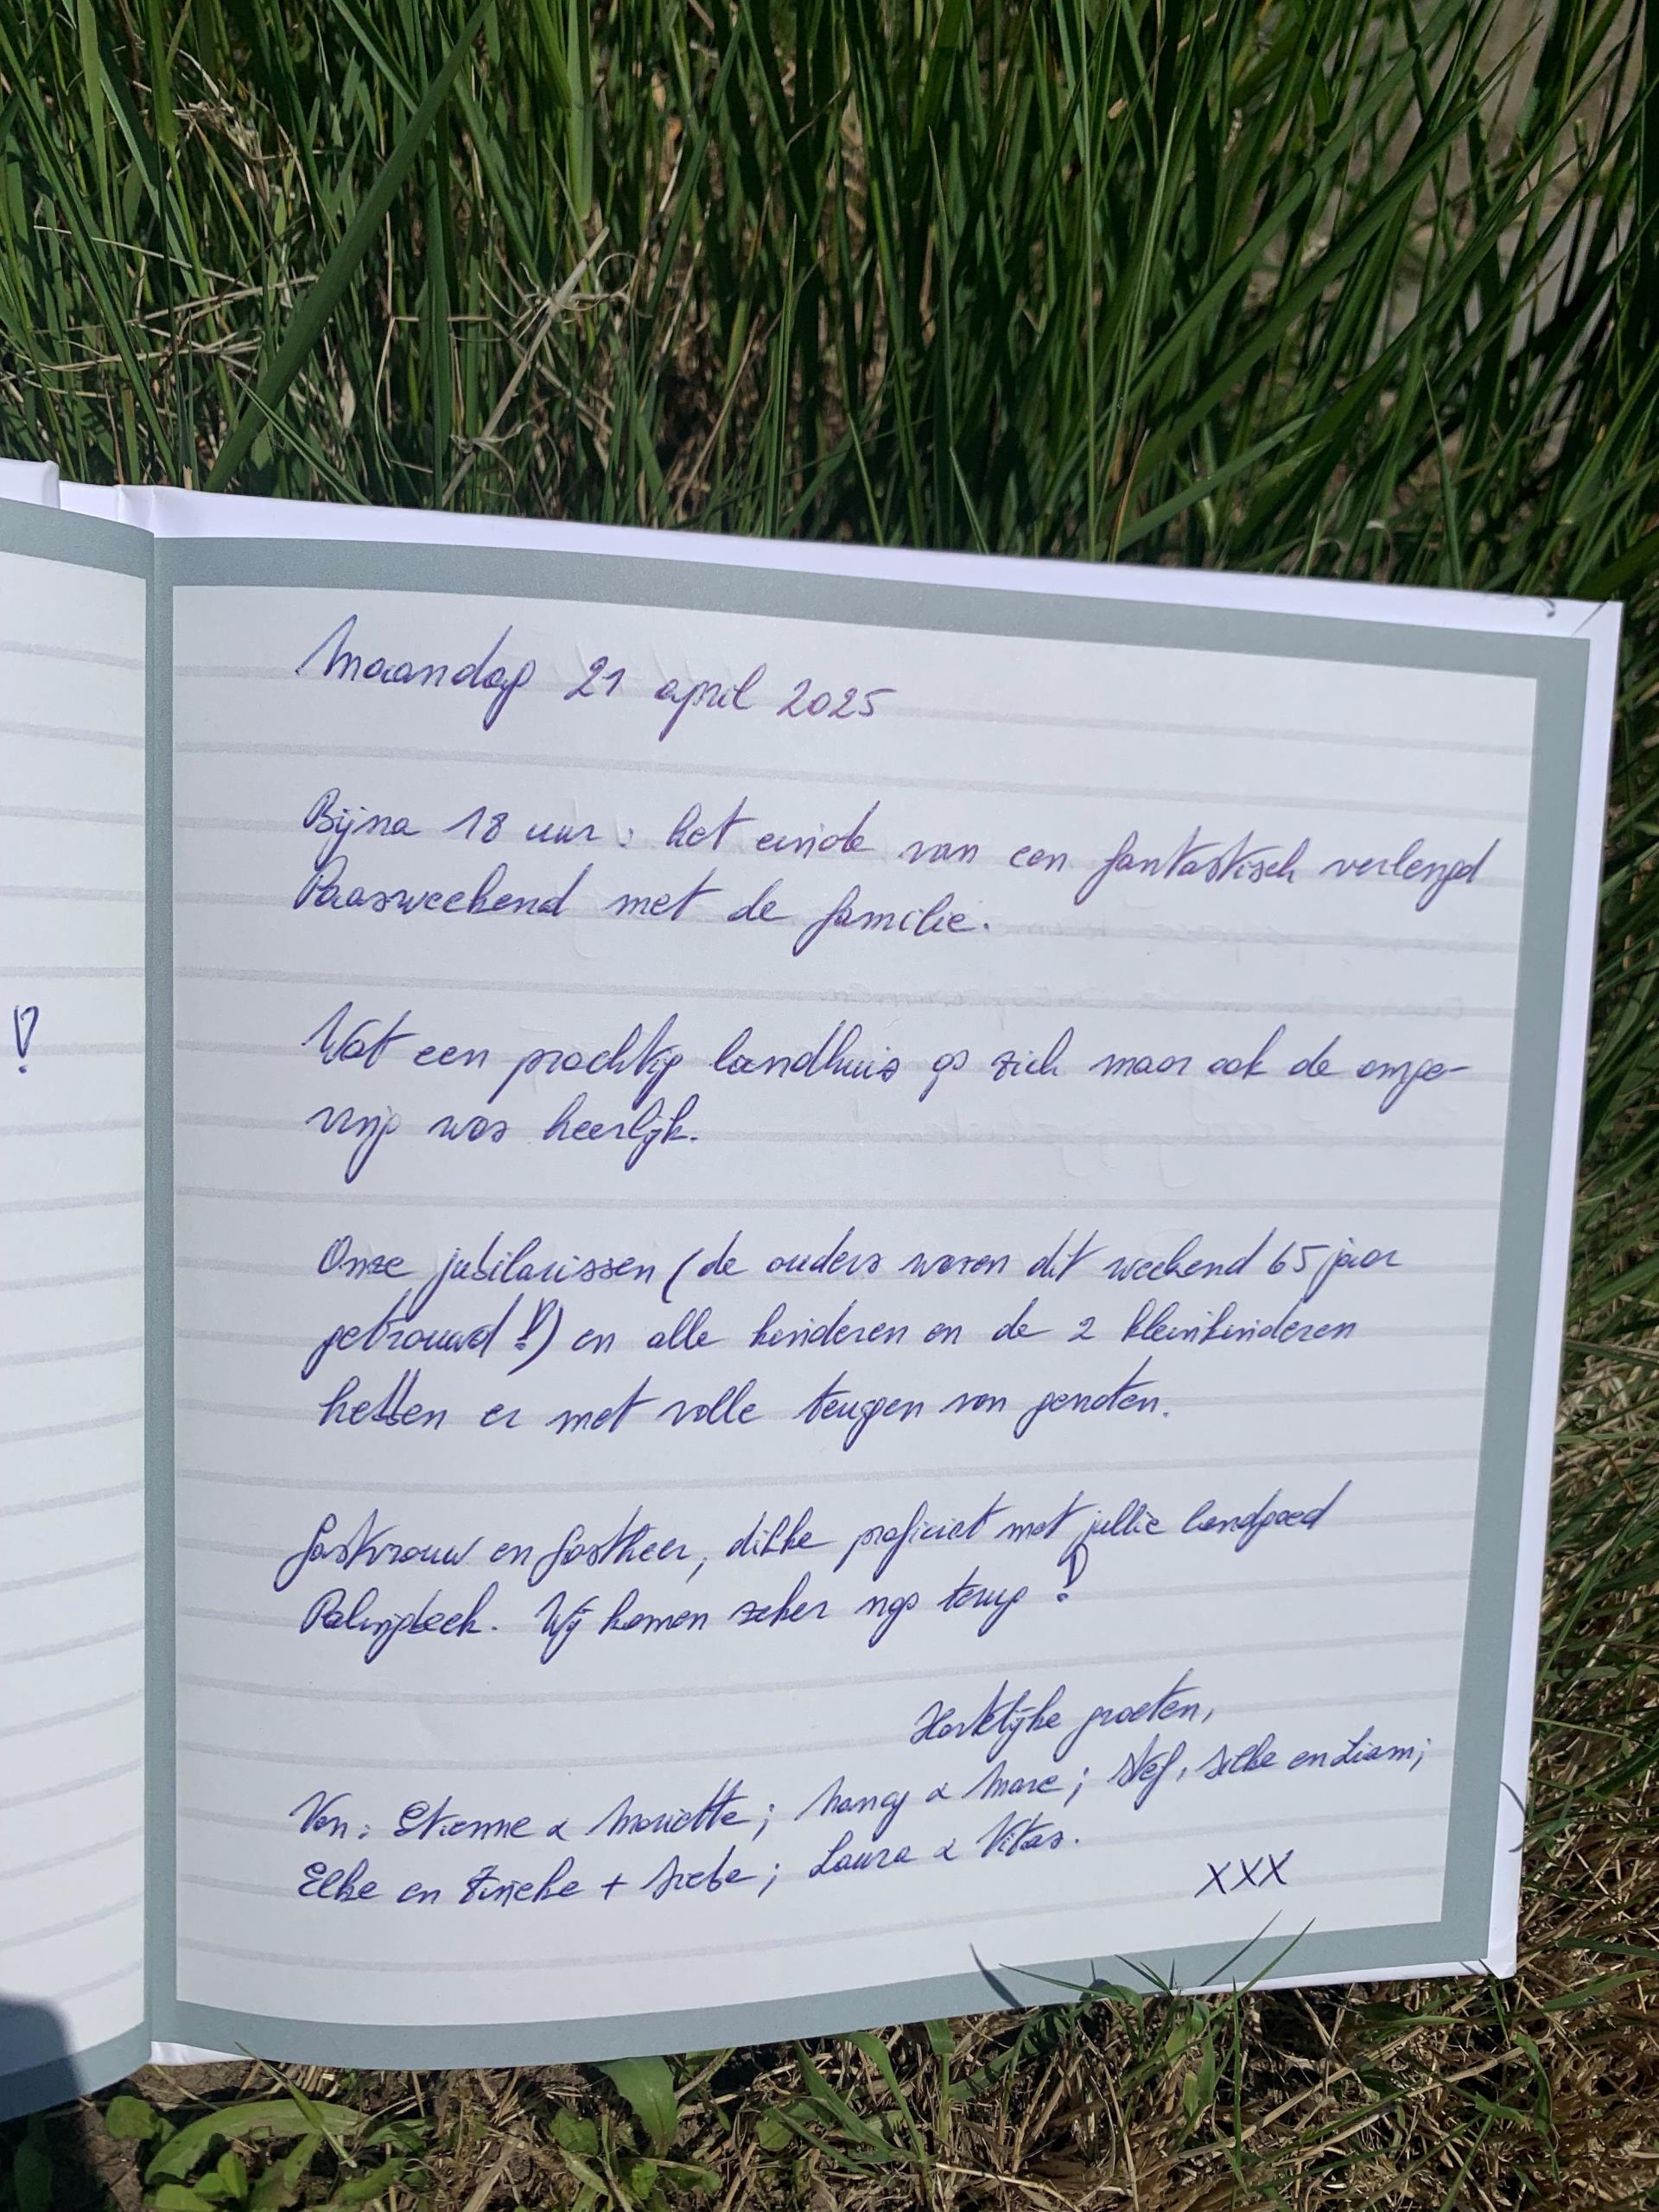 !
Maandag 21 april 2025
Bijna 18 uur : het einde van een fantastisch verlengd
Paasweekend met de familie.
Wat een prachtig landhuis op zich maar ook de omge-
ving was heerlijk.
Onze jubilarissen (de ouders waren dit weekend 65 jaar
getrouwd !) en alle kinderen en de 2 kleinkinderen
hebben er met volle teugen van genoten.
Gastvrouw en gastheer, dikke proficiat met jullie landgoed
Palingbeek. Wij komen zeker nog terug !
Hartelijke groeten,
Van : Etienne & Mariette ; Nancy & Marc ; Stef, Silke en Liam ;
Elke en Tineke + Siebe ; Laura & Vitas.
XXX